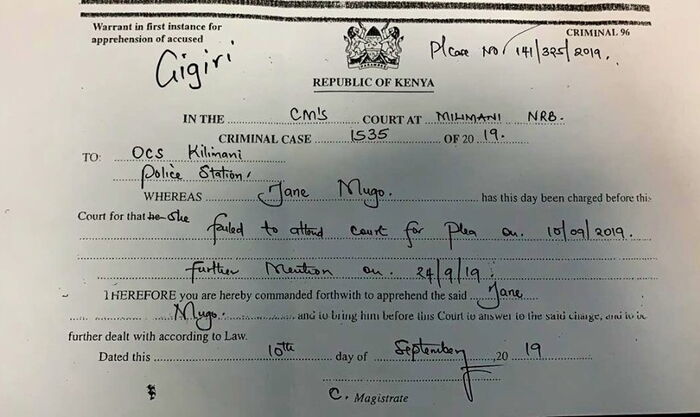 Warrant in first instance for
apprehension of accused
CRIMINAL 96
Gigiri
REPUBLIC OF KENYA
IN THE CM's COURT AT MILIMANI NRB.
CRIMINAL CASE 1535 OF 2019.
TO: OCS Kilimani
Police Station,
WHEREAS Jane Mugo. has this day been charged before this
Court for that he She failed to attend court for Plea on. 10/09/2019.
further Mention on. 24/9/19.
THEREFORE you are hereby commanded forthwith to apprehend the said Jane
Mugo. and to bring him before this Court to answer to the said charge, and to be
further dealt with according to Law.
Dated this 10th day of September, 20 19
C. Magistrate